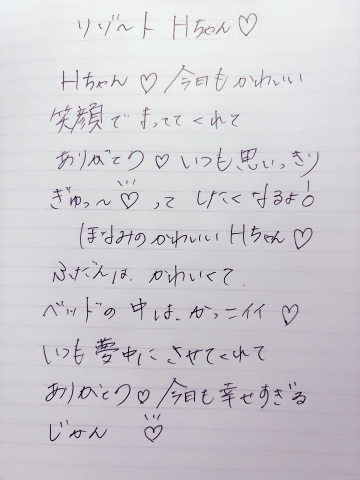 リゾート Hちゃん♡
Hちゃん♡今日もかわいい
笑顔でまっててくれて
ありがとう♡いつも思いっきり
ぎゅっ〜♡ってしたくなるよ!
ほなみのかわいいHちゃん♡
ふだんは、かわいくて
ベッドの中は、かっこイイ♡
いつも夢中にさせてくれて
ありがとう♡今日も幸せすぎる
じかん♡